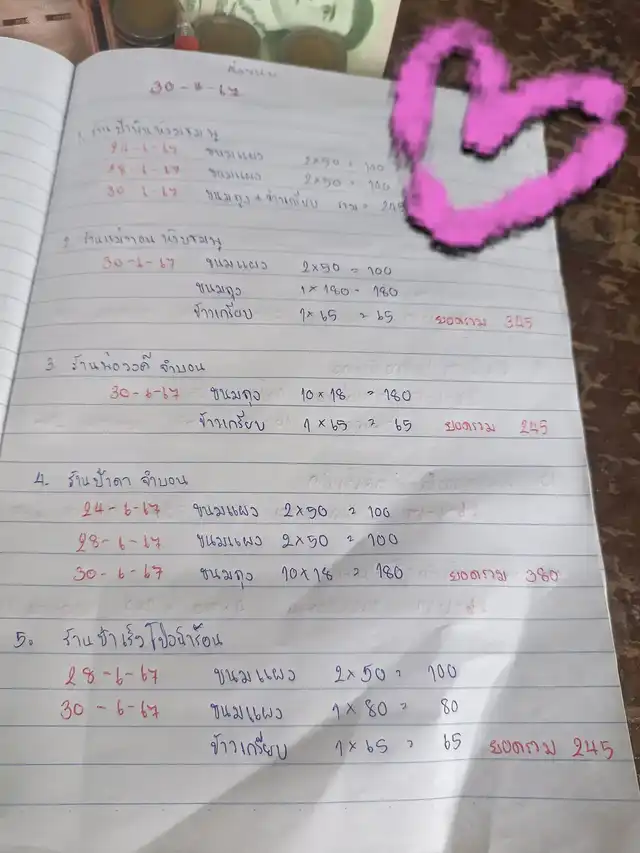 30-6-67
1. ร้าน
24-6-67 ขนมแผง 2×50 = 100
28-6-67 ขนมแผง 2×50 = 100
30 6-67 ขนมถุง + ข้าวเกรียบ รวม = 245
2. ร้าน
30-6-67 ขนมแผง 2×50 = 100
ขนมถุง 1×180 = 180
ข้าวเกรียบ 1×65 = 65 ยอดรวม 345
3 ร้านพ่อวงดี จำบอน
30-6-67 ขนมถุง 10×18 = 180
ข้าวเกรียบ 1×65 = 65 ยอดรวม 245
4. ร้านป้าดา จำบอน
24-6-67 ขนมแผง 2×50 = 100
28-6-67 ขนมแผง 2×50 = 100
30-6-67 ขนมถุง 10×18 = 180 ยอดรวม 380
5. ร้านป้าเร็ว
28-6-67 ขนมแผง 2×50 = 100
30-6-67 ขนมแผง 1×80 = 80
ข้าวเกรียบ 1×65 = 65 ยอดรวม 245